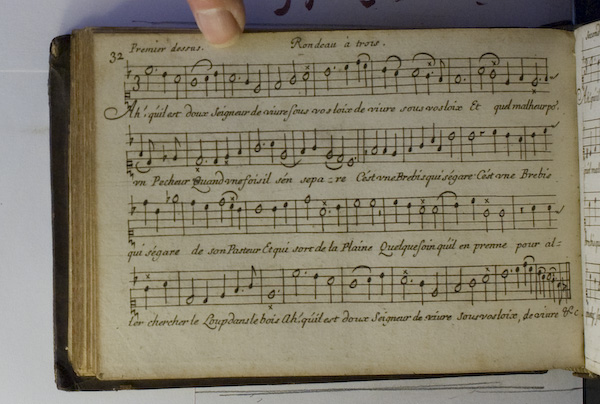 32 Premier dessus. Rondeau à trois.
Ah! qu'il est doux Seigneur de viure sous vos loix de viure sous vos loix Et quel malheur po.
vn Pecheur Quand vne fois il s'en sepa - re C'est vne Brebis qui s'égare C'est vne Brebis
qui s'égare de son Pasteur Et qui sort de la Plaine Quelque soin qu'il en prenne pour al -
ler chercher le Loup dans le bois Ah! qu'il est doux Seigneur de viure sous vos loix, de viure &c